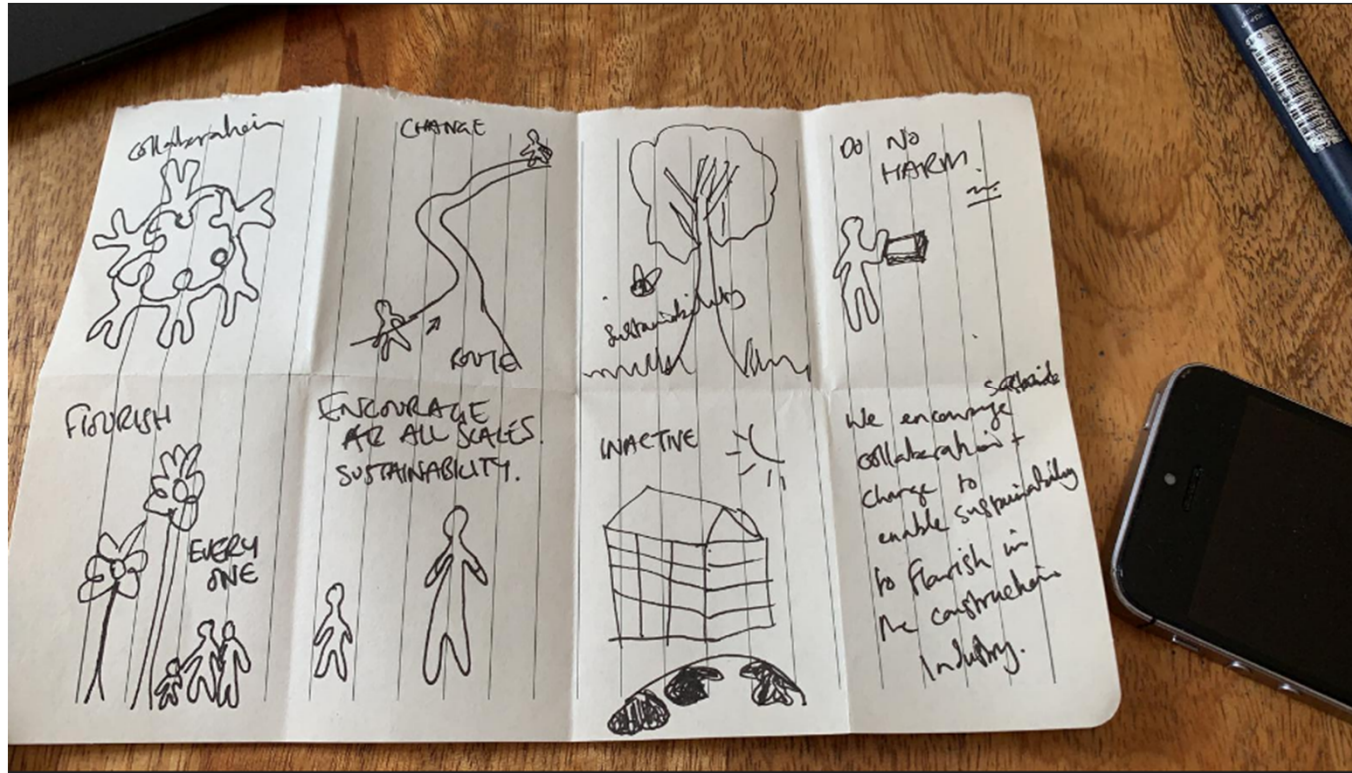 Collaboration
CHANGE
ROUTE
Sustainability
DO NO
HARM
FLOURISH
EVERY
ONE
ENCOURAGE
AT ALL SCALES.
SUSTAINABILITY.
INACTIVE
We encourage
collaboration +
change to
enable sustainability
to flourish in
the construction
Industry.